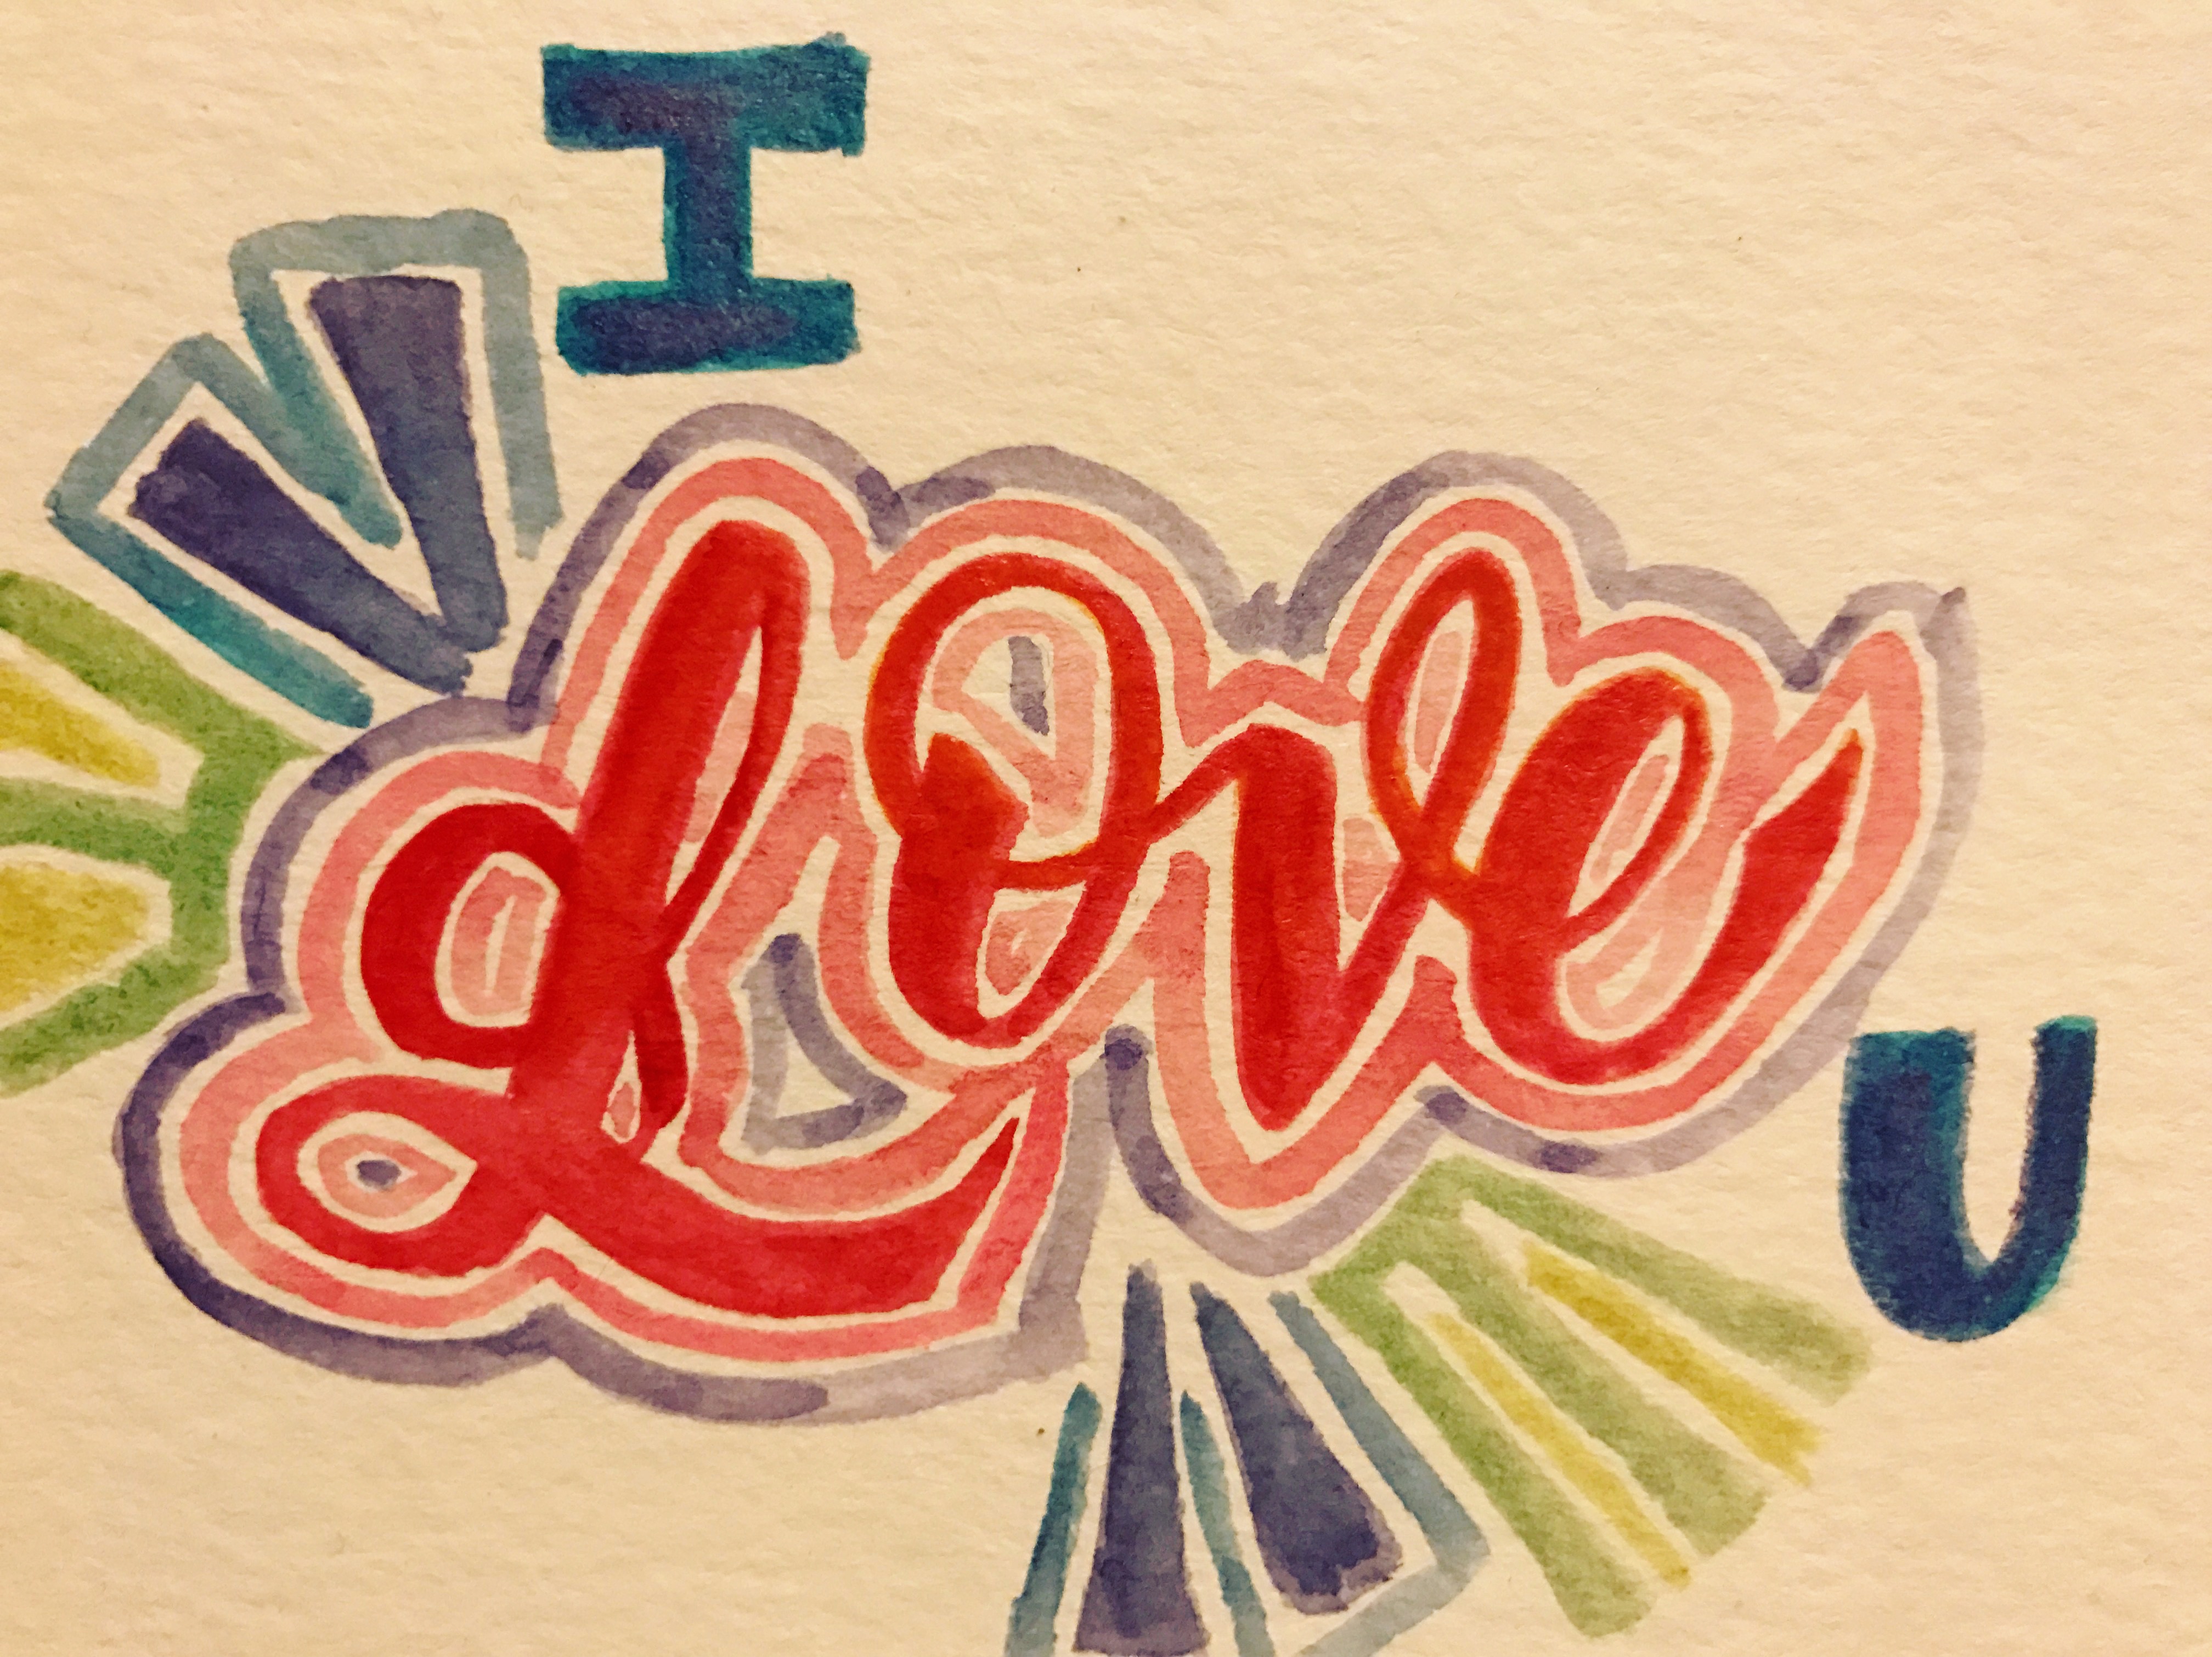 I
Love
U